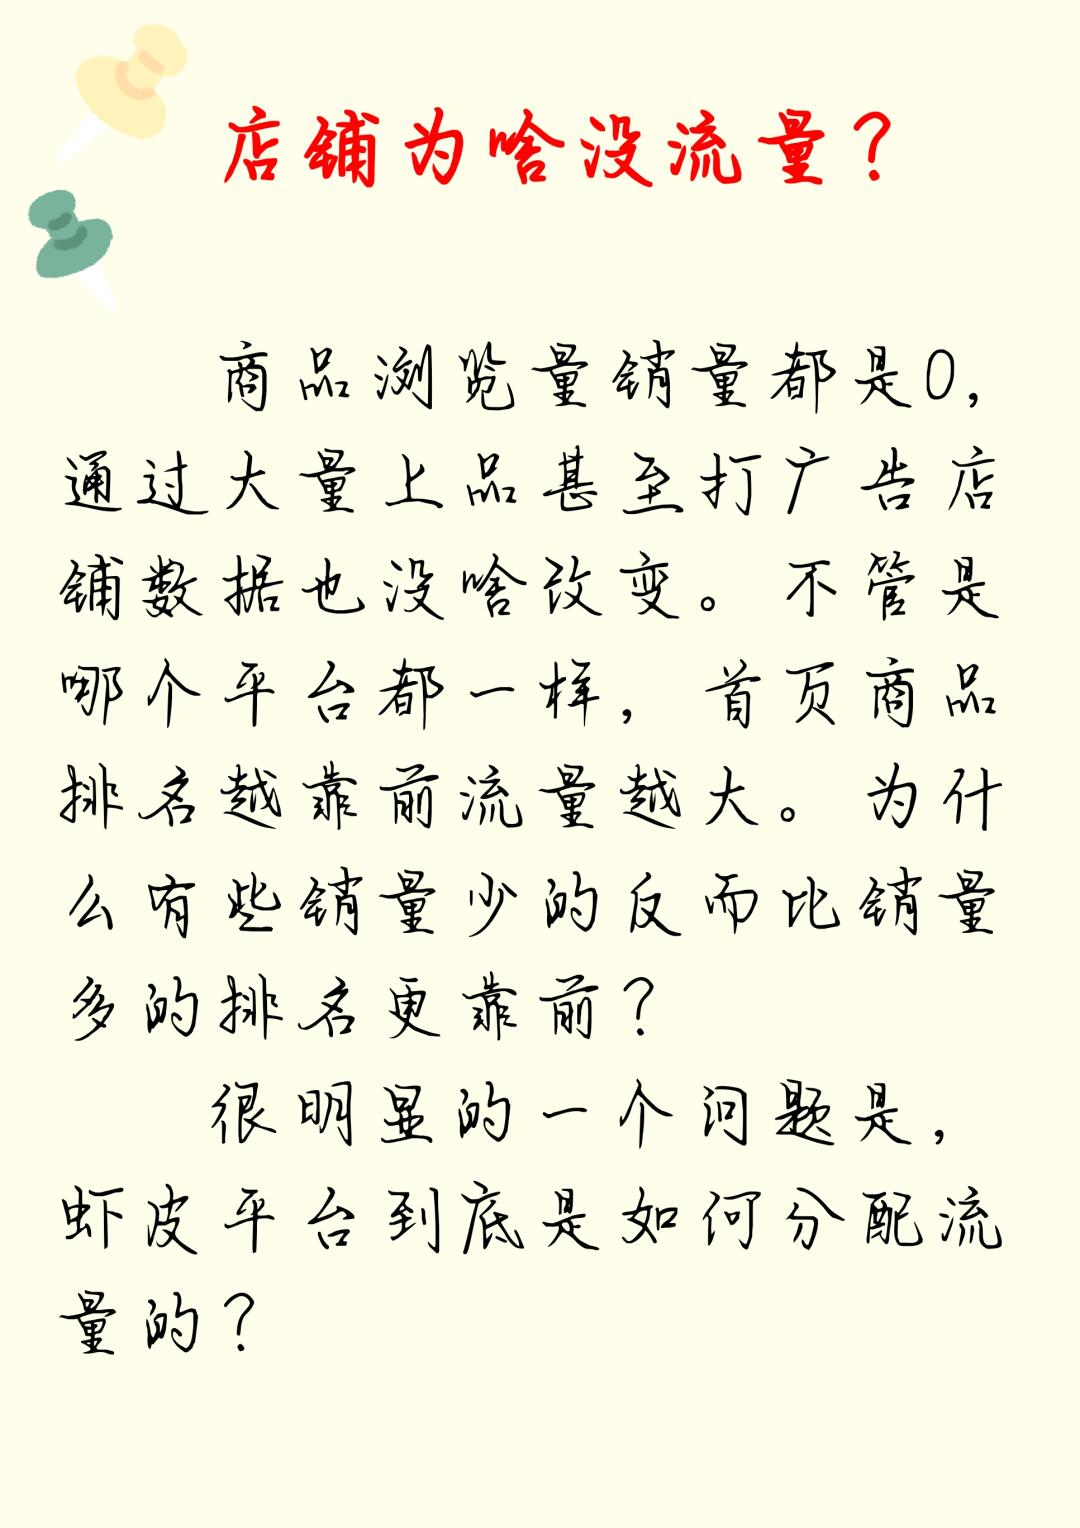 店铺为啥没流量？
商品浏览量销量都是0，
通过大量上品甚至打广告店
铺数据也没啥改变。不管是
哪个平台都一样，首页商品
排名越靠前流量越大。为什
么有些销量少的反而比销量
多的排名更靠前？
很明显的一个问题是，
虾皮平台到底是如何分配流
量的？